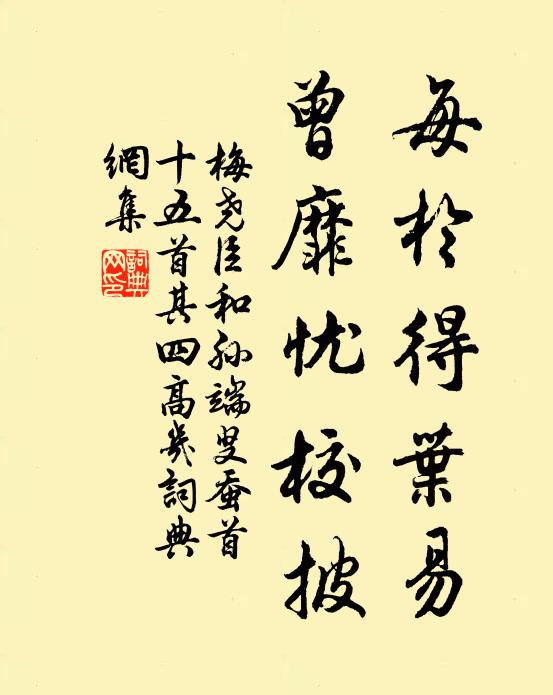 每於得葉易
曾靡忧校披
梅尧臣和孙端叟蚕首
十五首其四高幾詞典
網集
詞典
网印